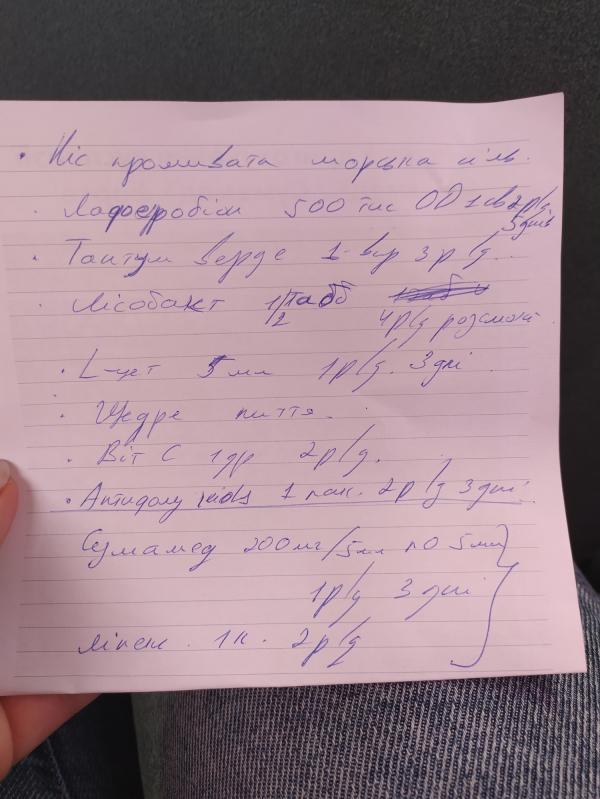 · Ніс промивата морська сіль.
· Ладоеробіон 500 тис ОД 1св 2р/д
5 днів
· Тантум верде 1-вир 3р/д.
· Лісобакт 1/2 табб
4р/д розсмокт
· L-цет 5 мл 1р/д. 3 дні
· Щедре пиття.
· Віт С 1др 2р/д.
· Антифлу kids 1 пак. 2р/д 3 дні.
Сумамед 200мг/5мл по 5мл
1р/д 3 дні
1к. 2р/д